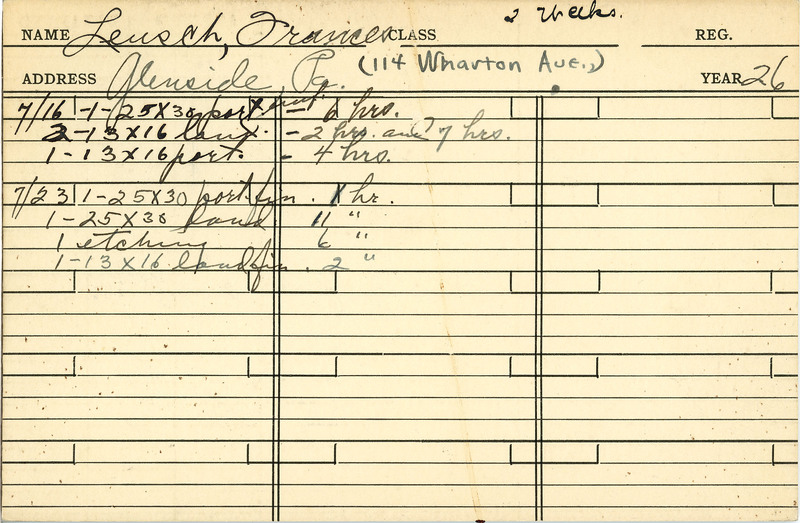 2 Weeks.
NAME Leusch, Frances CLASS REG.
ADDRESS Glenside Pa. (114 Wharton Ave.,) YEAR 26
7/16 -1-25X30 port. - 6 hrs.
2-13X16 land. - 2 hrs. and 7 hrs.
1-13X16 port. - 4 hrs.
7/23 1-25X30 port. fin. 1 hr.
1-25X30 land 11 "
1 etching 6 "
1-13X16 land fin. 2 "